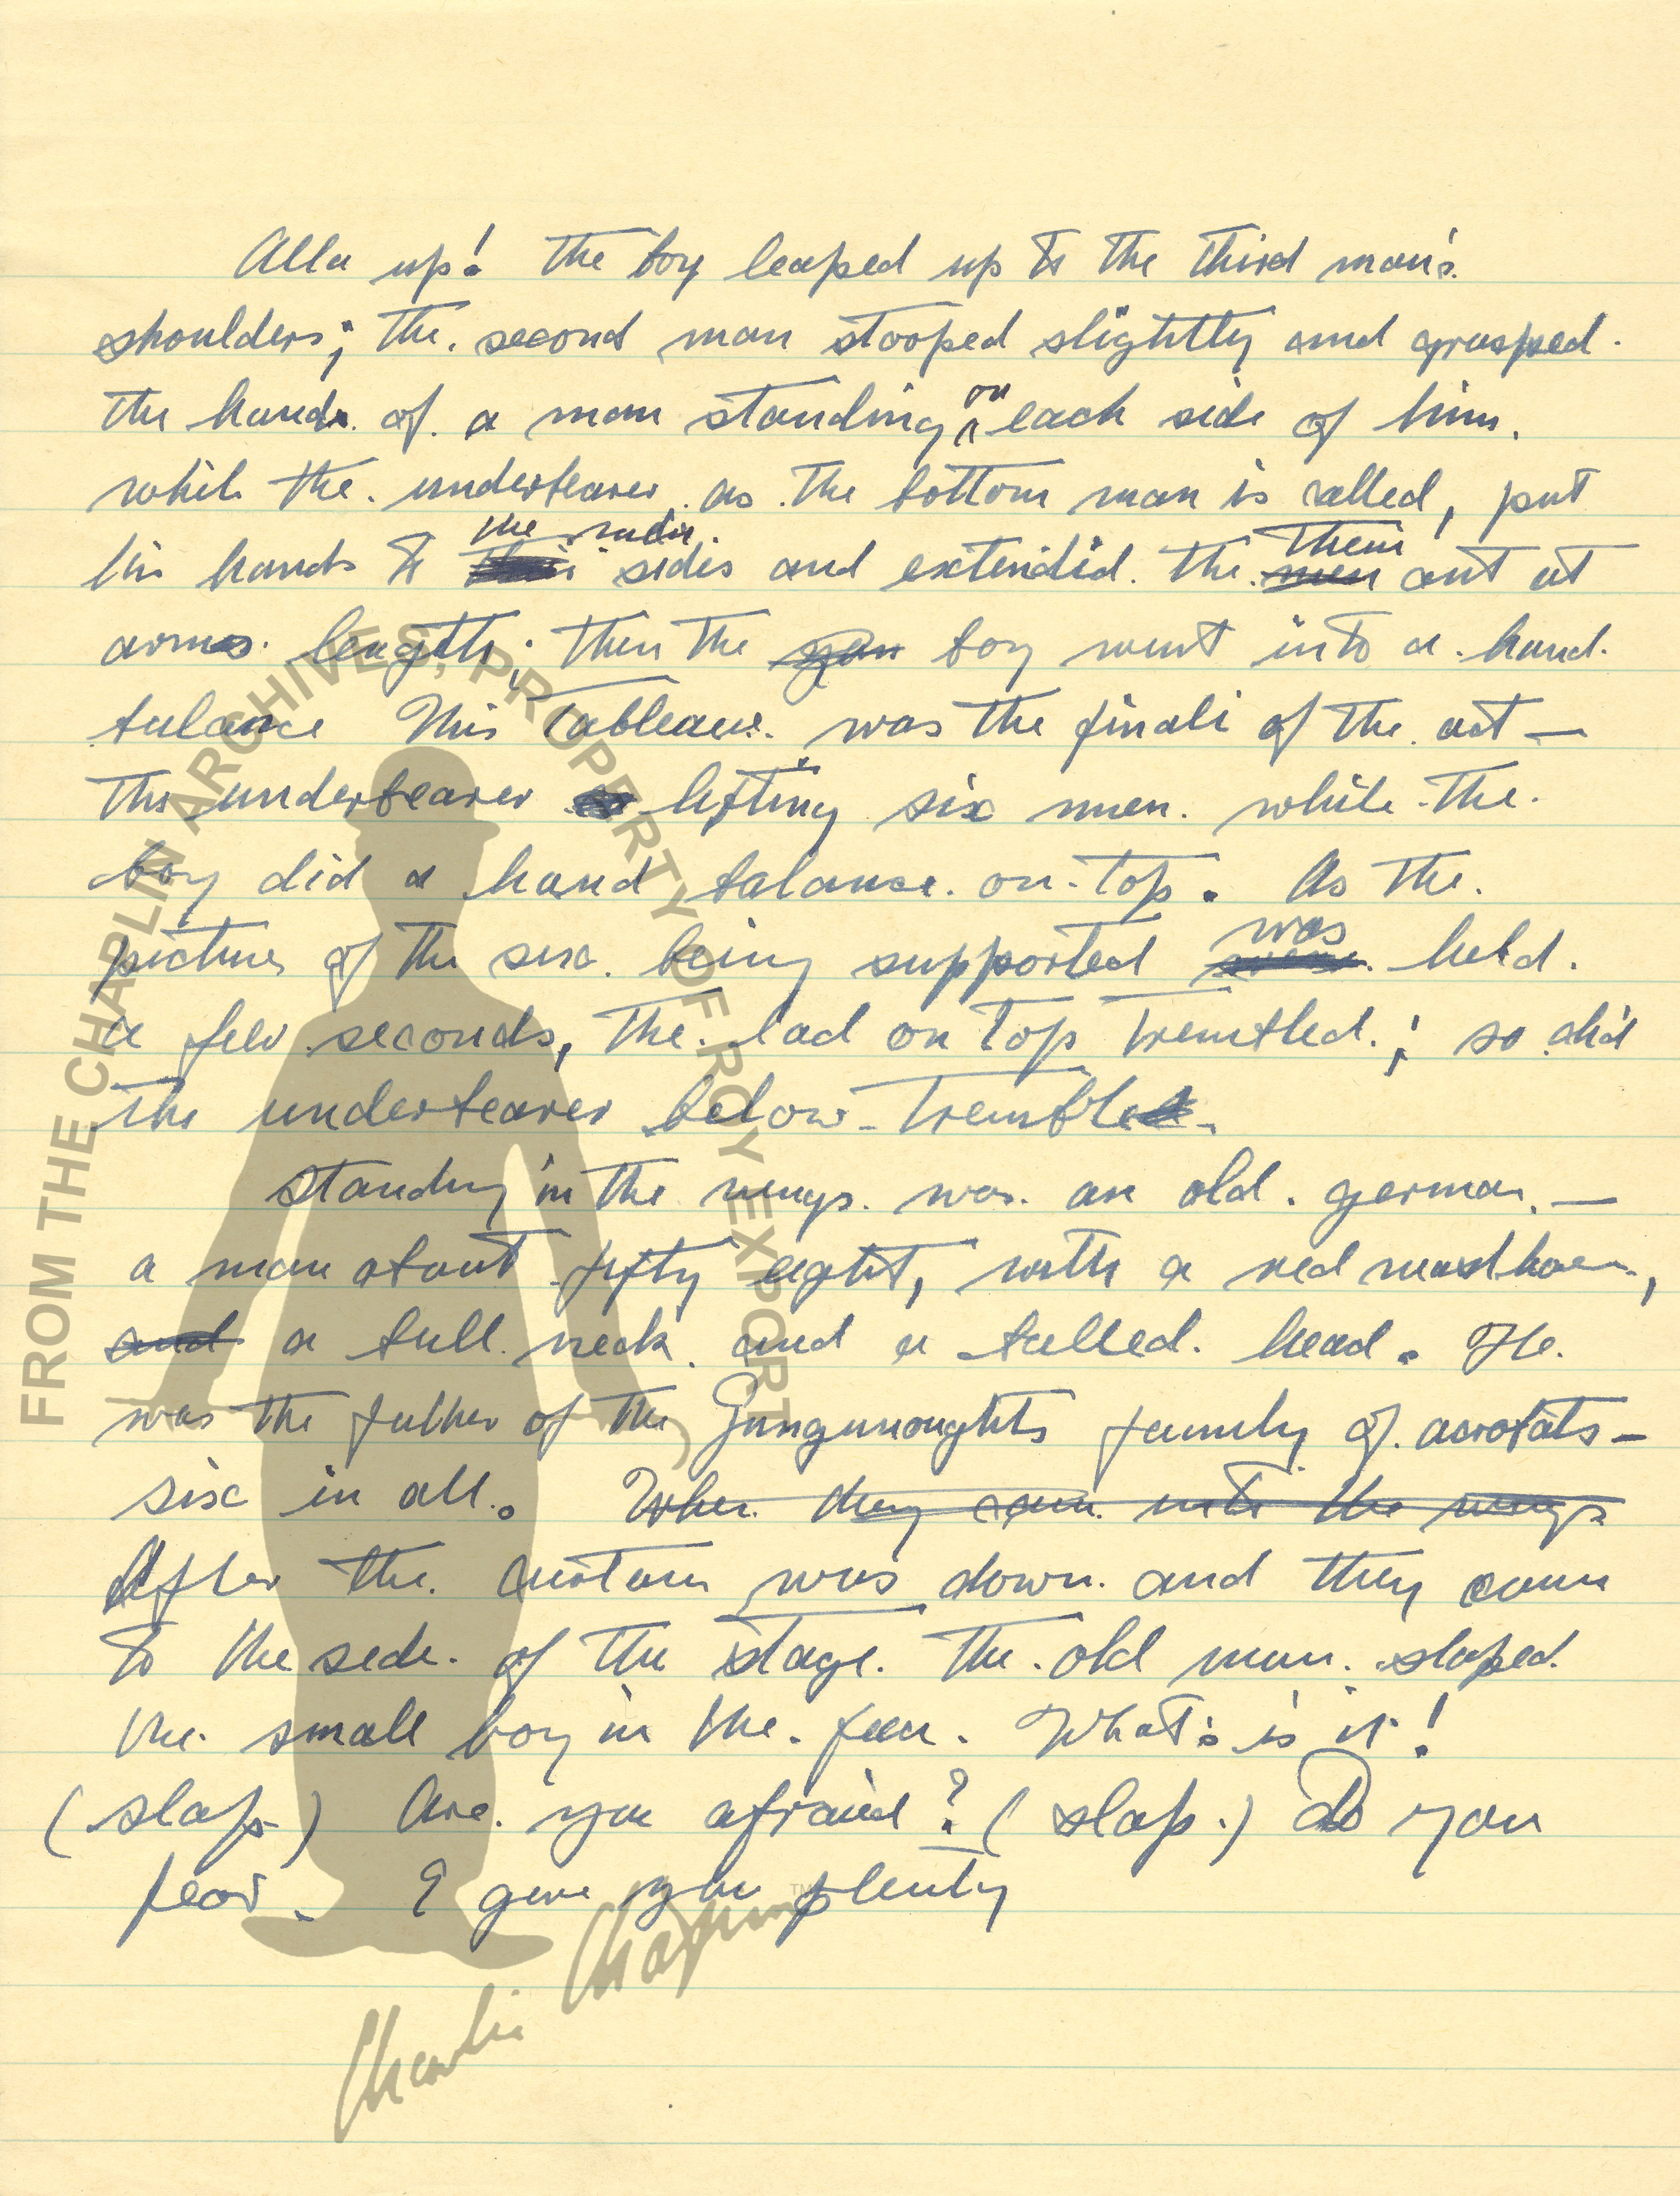 Alla up! the boy leaped up to the third man's
shoulders; the second man stooped slightly and grasped
the hands of a man standing on each side of him.
while the underbearer as the bottom man is called, put
his hands to the sides and extended the men out at
arms length; then the boy went into a hand
balance This Tableau was the finali of the act —
the underbearer lifting six men. while the
boy did a hand balance on top. As the
picture of the six being supported was held
a few seconds, the lad on top trembled; so did
the underbearer below tremble
Standing in the wings was an old german —
a man about fifty eight, with a red
and a bull neck and a balled head. He
was the father of the family of acrobats —
six in all. When they came into the wings
After the curtain was down and they came
to the side of the stage the old man slaped
the small boy in the face. What is it!
(slap) Are you afraid? (slap.) do you
fear. I give you plenty
FROM THE CHAPLIN ARCHIVES, PROPERTY OF ROY EXPORT
Charlie Chaplin TM